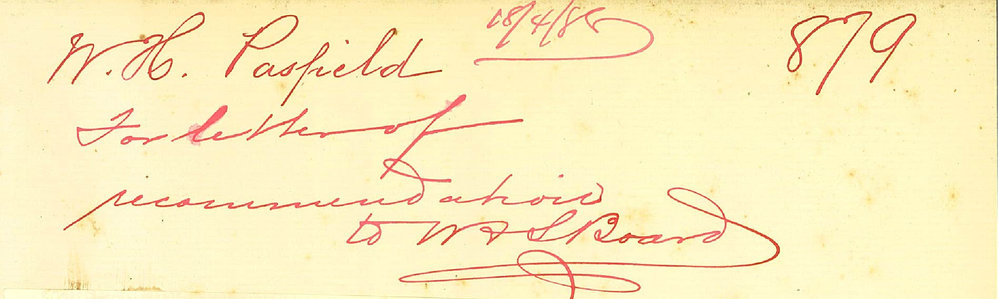 W. H. Pasfield 18/4/88 879
For letter of
recommendation
to W & S Board